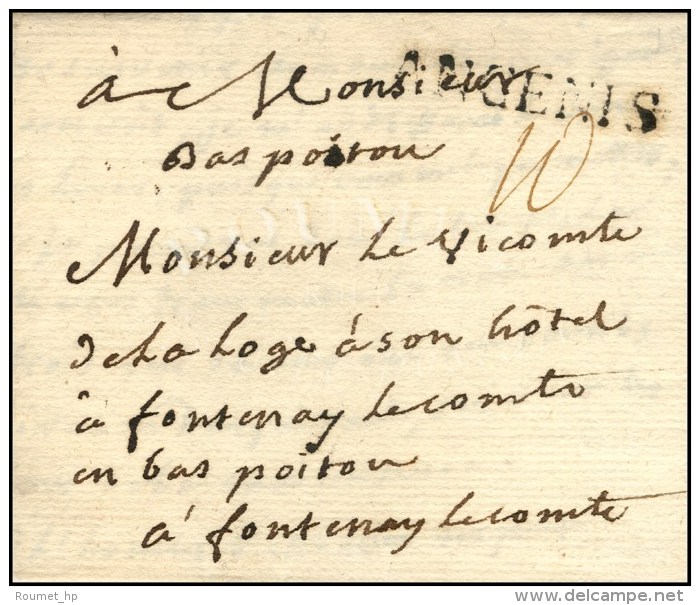 à Monsieur
ANCENIS
Bas poitou
10
Monsieur le vicomte
de la loge à son hôtel
à fontenay lecomte
en bas poitou
à fontenay lecomte
Roumet_hp
delcampe.net